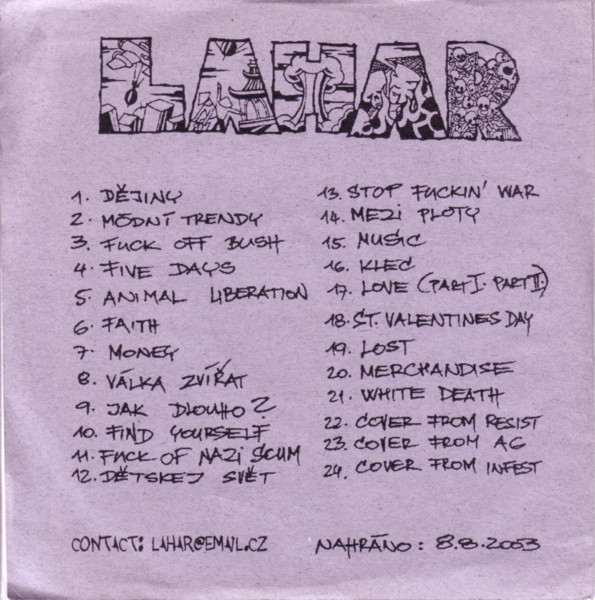 LAHAR
1. DĚJINY
2. MÓDNÍ TRENDY
3. FUCK OFF BUSH
4. FIVE DAYS
5. ANIMAL LIBERATION
6. FAITH
7. MONEY
8. VÁLKA ZVÍŘAT
9. JAK DLOUHO?
10. FIND YOURSELF
11. FUCK OF NAZI SCUM
12. DĚTSKEJ SVĚT
13. STOP FUCKIN' WAR
14. MEZI PLOTY
15. MUSIC
16. KLEC
17. LOVE (PART I. PART II.)
18. ST. VALENTINES DAY
19. LOST
20. MERCHANDISE
21. WHITE DEATH
22. COVER FROM RESIST
23. COVER FROM AG
24. COVER FROM INFEST
CONTACT: LAHAR@EMAIL.CZ
NAHRÁNO: 8.8.2003